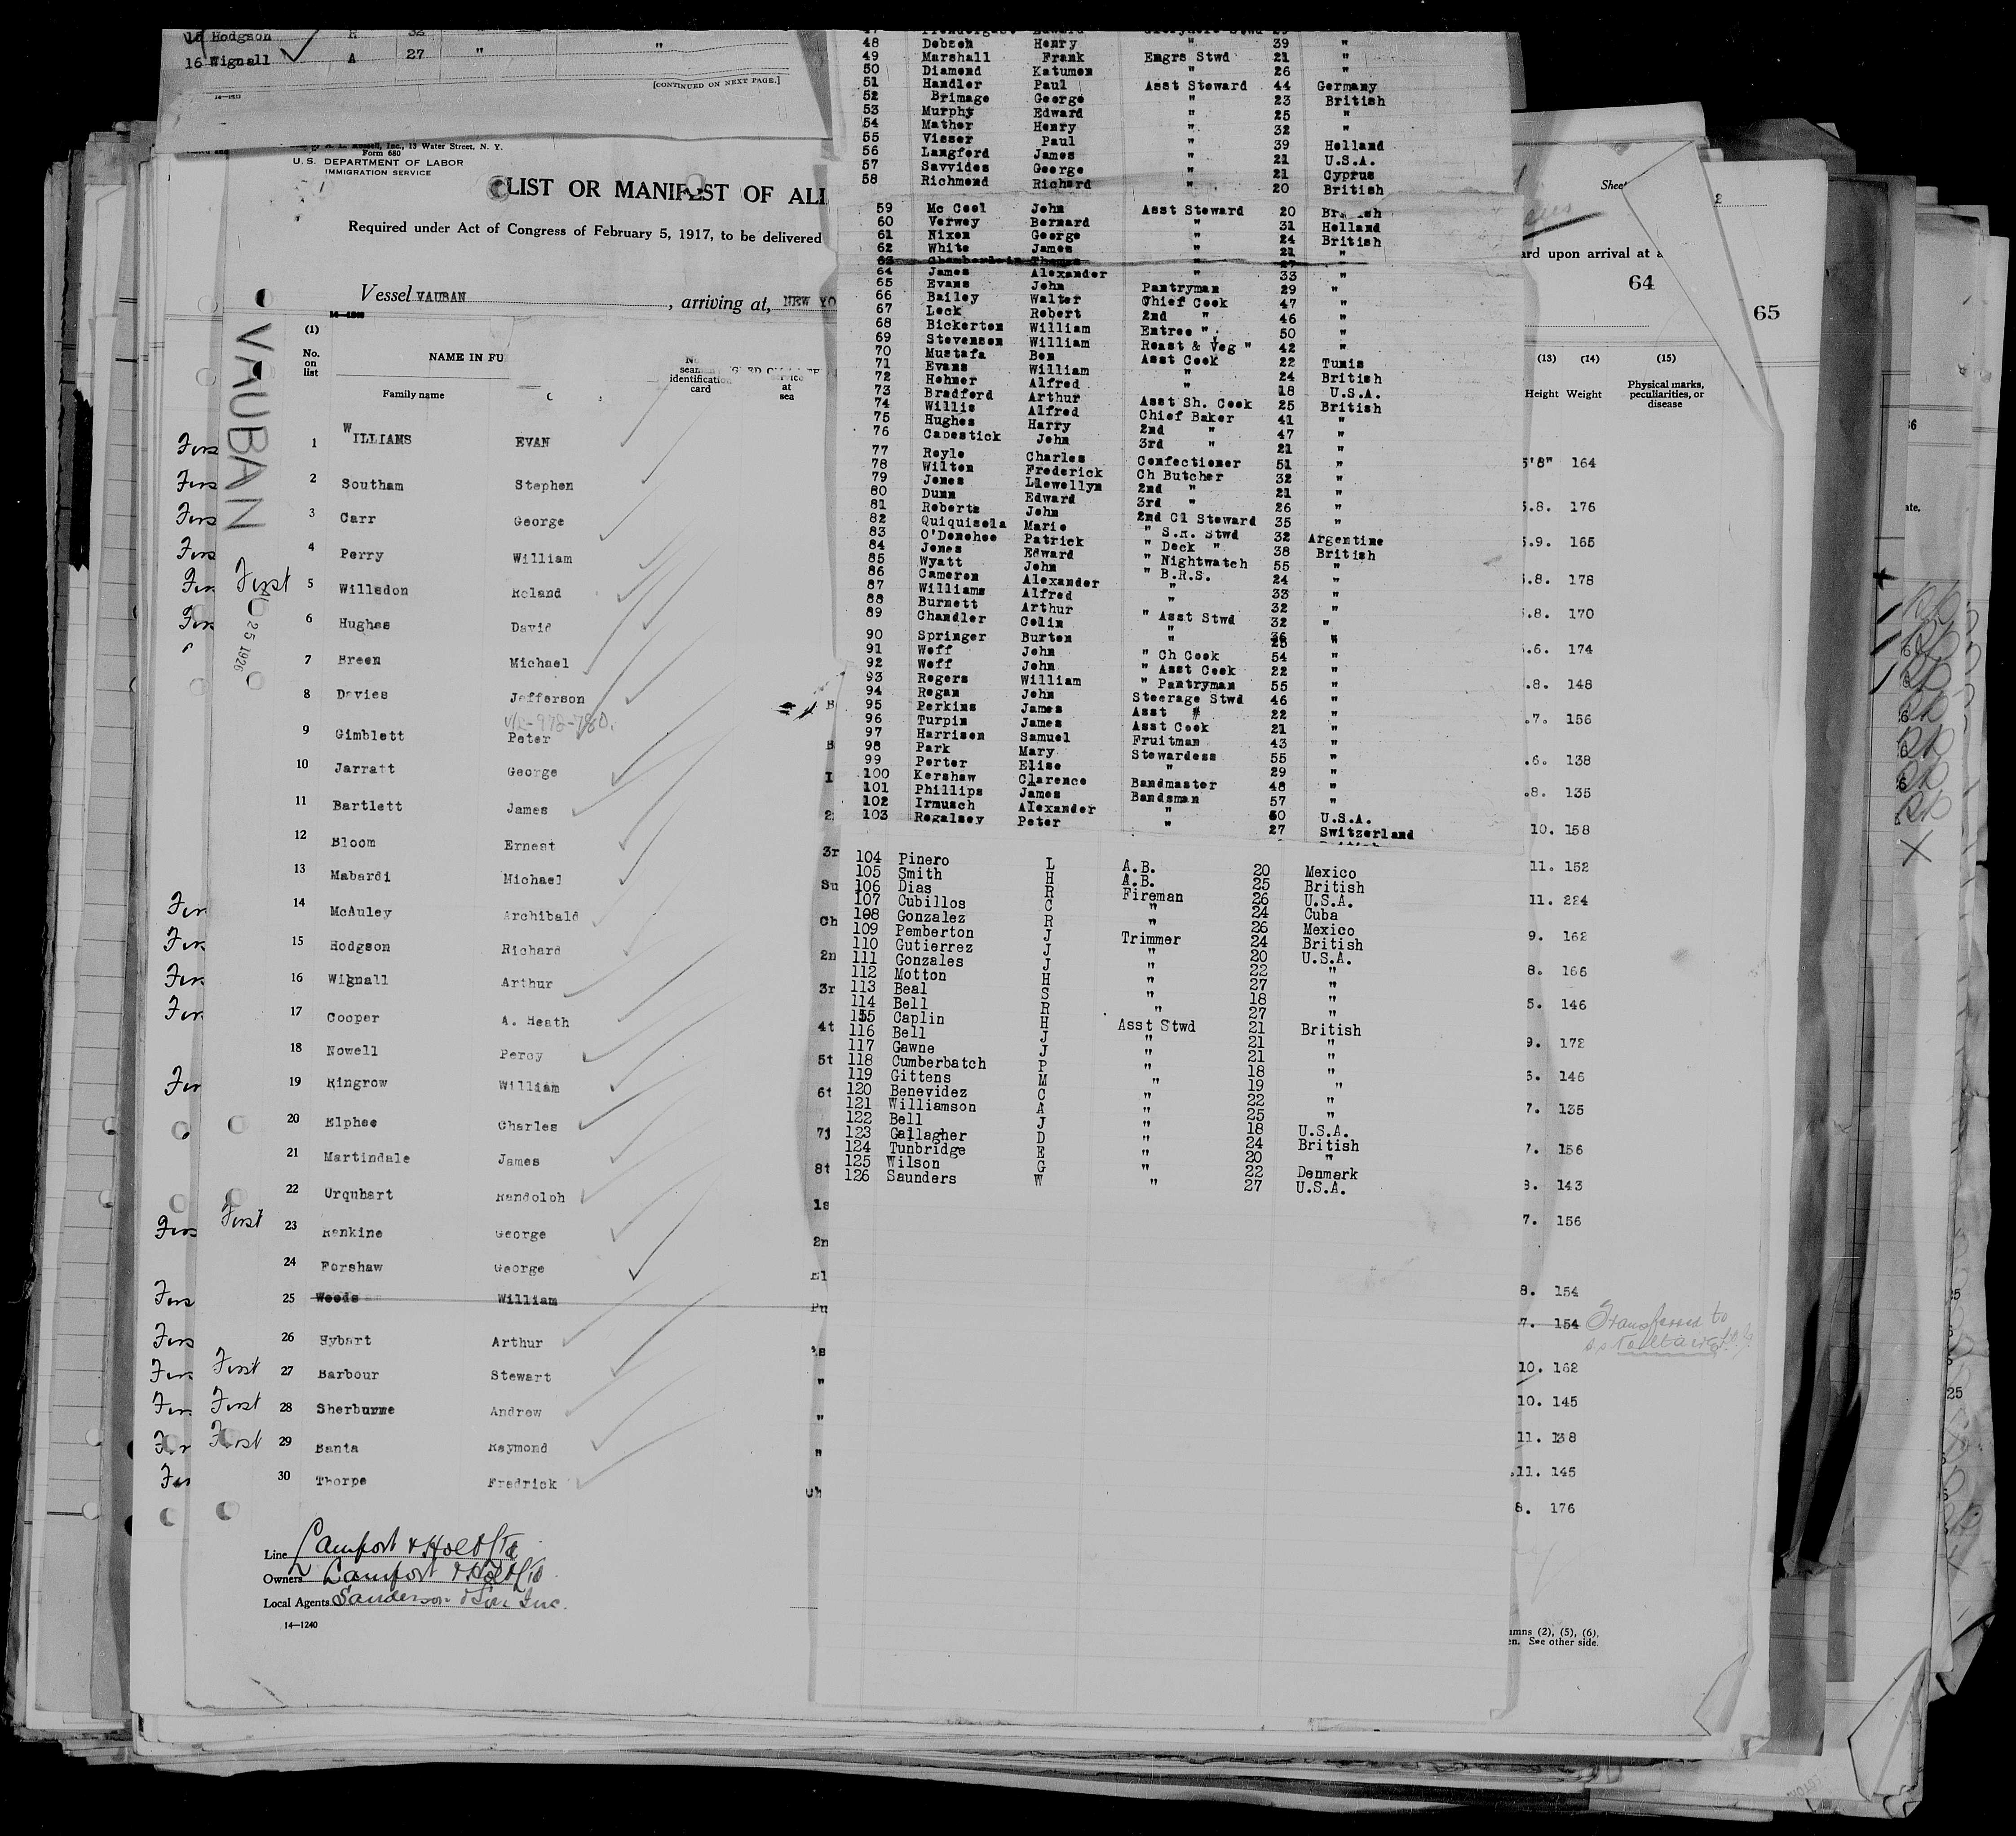 15 Hodgson R 32
16 Wignall A 27 " "
[CONTINUED ON NEXT PAGE.]
Inc., 13 Water Street, N. Y.
Form 680
U.S. DEPARTMENT OF LABOR
IMMIGRATION SERVICE
LIST OR MANIFEST OF ALI
Required under Act of Congress of February 5, 1917, to be delivered
Vessel VAUBAN, arriving at, NEW YO
VAUBAN
25 1926
(1)
No. on list
NAME IN FU
Family name
identification card
at sea
1 WILLIAMS EVAN
2 Southam Stephen
3 Carr George
4 Perry William
First 5 Willedon Roland
6 Hughes David
7 Breen Michael
8 Davies Jefferson
9 Gimblett Peter
10 Jarratt George
11 Bartlett James
12 Bloom Ernest
13 Mabardi Michael
14 McAuley Archibald
15 Hodgson Richard
16 Wignall Arthur
17 Cooper A. Heath
18 Nowell Percy
19 Ringrow William
20 Elphee Charles
21 Martindale James
22 Urquhart Randolph
First 23 Renkine George
24 Forshaw George
25 Woods William
26 Hybart Arthur
First 27 Barbour Stewart
First 28 Sherburne Andrew
First 29 Banta Raymond
30 Thorpe Fredrick
Line Lamport & Holt Ltd
Owners Lamport & Holt Ltd
Local Agents Sanderson & Son Inc.
14—1240
48 Debzen Henry " 39 "
49 Marshall Frank Emgrs Stwd 21 "
50 Diamond Katumen " 26 "
51 Handler Paul Asst Steward 44 Germany
52 Brimage George " 23 British
53 Murphy Edward " 25 "
54 Mather Henry " 32 "
55 Visser Paul " 39 Holland
56 Langford James " 21 U.S.A.
57 Savvides George " 21 Cyprus
58 Richmond Richard " 20 British
59 Mc Cool John Asst Steward 20 British
60 Verwey Bernard " 31 Holland
61 Nixon George " 24 British
62 White James " 21 "
63 Chamberlain Thomas " 27 "
64 James Alexander " 33 "
65 Evans John Pantryman 29 "
66 Bailey Walter Chief Cook 47 "
67 Lock Robert 2nd " 46 "
68 Bickerton William Entree " 50 "
69 Stevenson William Roast & Veg " 42 "
70 Mustafa Ben Asst Cook 22 Tunis
71 Evans William " 24 British
72 Hohner Alfred " 18 U.S.A.
73 Bradford Arthur Asst Sh. Cook 25 British
74 Willis Alfred Chief Baker 41 "
75 Hughes Harry 2nd " 47 "
76 Capestick John 3rd " 21 "
77 Royle Charles Confectioner 51 "
78 Wilton Frederick Ch Butcher 32 "
79 Jones Llewellyn 2nd " 21 "
80 Dunn Edward 3rd " 26 "
81 Roberts John 2nd Cl Steward 35 "
82 Quiquisola Marie " S.R. Stwd 32 Argentine
83 O'Donohee Patrick " Deck " 38 British
84 Jones Edward " Nightwatch 55 "
85 Wyatt John " B.R.S. 24 "
86 Cameron Alexander " 33 "
87 Williams Alfred " 32 "
88 Burnett Arthur " Asst Stwd 32 "
89 Chandler Colin " 36 "
90 Springer Burton " 25 "
91 Woff John " Ch Cook 54 "
92 Woff John " Asst Cook 22 "
93 Rogers William " Pantryman 55 "
94 Regan John Steerage Stwd 46 "
95 Perkins James Asst " 22 "
96 Turpin James Asst Cook 21 "
97 Harrison Samuel Fruitman 43 "
98 Park Mary Stewardess 55 "
99 Porter Elise " 29 "
100 Kershaw Clarence Bandmaster 48 "
101 Phillips James Bandsman 57 "
102 Irmusch Alexander " 50 U.S.A.
103 Regalsey Peter " 27 Switzerland
104 Pinero L A.B. 20 Mexico
105 Smith H A.B. 25 British
106 Dias R Fireman 26 U.S.A.
107 Cubillos C " 24 Cuba
108 Gonzalez R " 26 Mexico
109 Pemberton J Trimmer 24 British
110 Gutierrez J " 20 U.S.A.
111 Gonzales J " 22 "
112 Motton H " 27 "
113 Beal S " 18 "
114 Bell R " 27 "
115 Caplin H Asst Stwd 21 British
116 Bell J " 21 "
117 Gawne J " 21 "
118 Cumberbatch P " 18 "
119 Gittens M " 19 "
120 Benevidez C " 22 "
121 Williamson A " 25 "
122 Bell J " 18 U.S.A.
123 Gallagher D " 24 British
124 Tunbridge E " 20 "
125 Wilson G " 22 Denmark
126 Saunders W " 27 U.S.A.
Sheet
ard upon arrival at a
64
65
(13) (14) (15)
Height Weight Physical marks, peculiarities, or disease
5'8" 164
5.8. 176
5.9. 165
.8. 178
.8. 170
.6. 174
.8. 148
.7. 156
.6. 138
.8. 135
10. 158
11. 152
11. 224
9. 162
8. 166
5. 146
9. 172
6. 146
7. 135
7. 156
8. 143
7. 156
8. 154
7. 154 Transferred to
10. 162
10. 145
11. 138
.11. 145
8. 176
umns (2), (5), (6),
en. See other side.